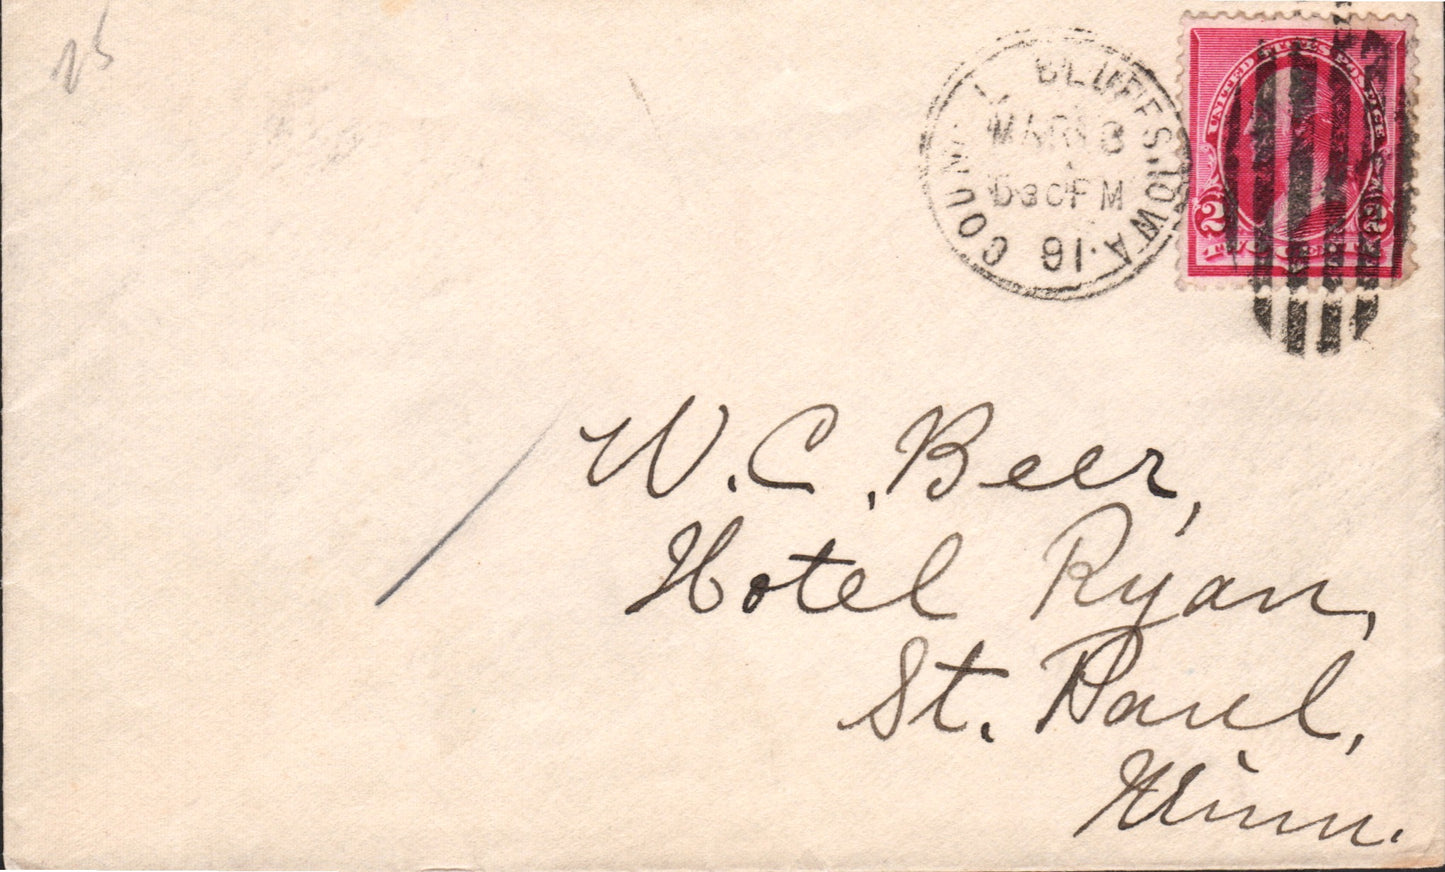 25
COUNCIL BLUFFS. IOWA.
MAR
PM
91
UNITED STATES POSTAGE
2 2
TWO CENTS
W. C. Beer,
Hotel Ryan,
St. Paul,
Minn.